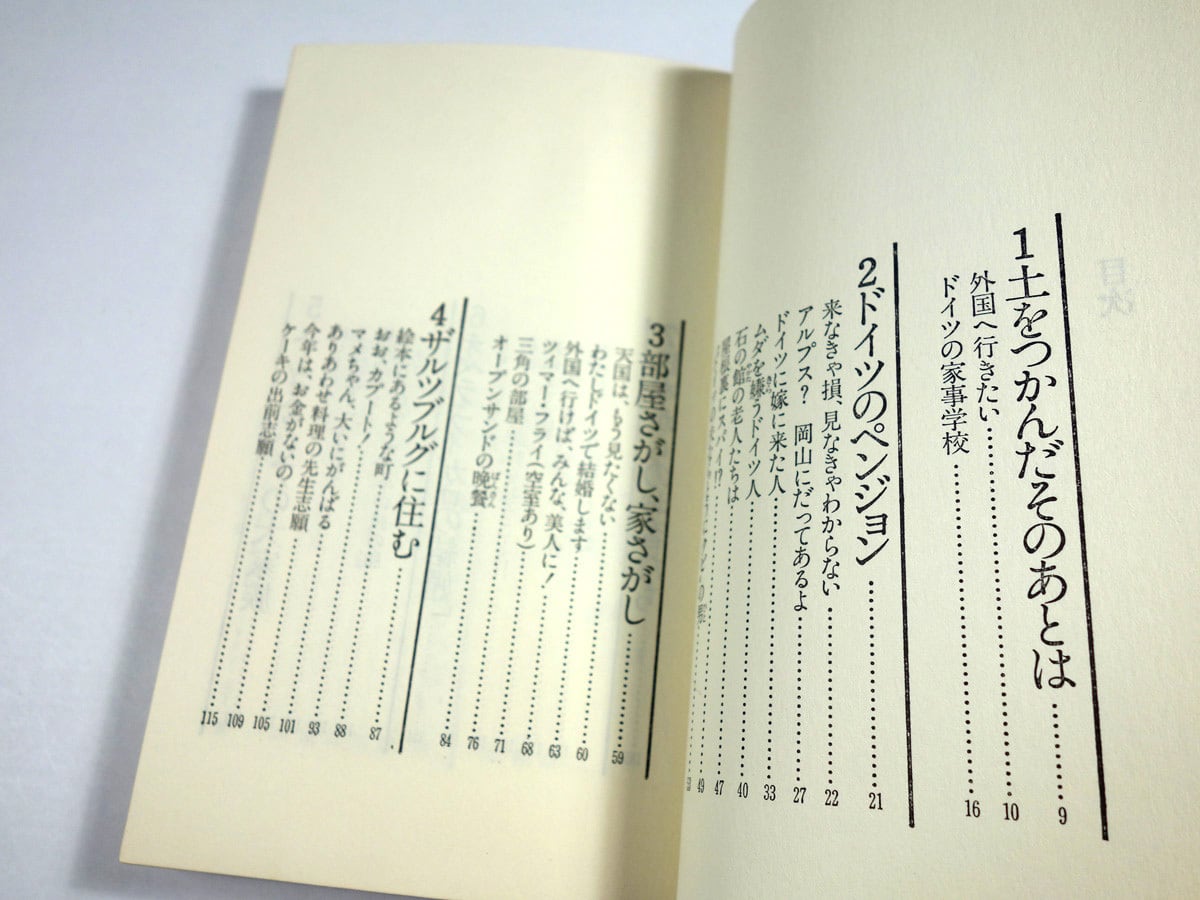 1土をつかんだそのあとは……9
外国へ行きたい……10
ドイツの家事学校……16
2ドイツのペンジョン……21
来なきゃ損、見なきゃわからない……22
アルプス? 岡山にだってあるよ……27
ドイツに嫁に来た人……33
ムダを嫌うドイツ人……40
石の館の老人たちは……47
屋根裏にスパイ!?……49
3部屋さがし、家さがし……59
天国は、もう見たくない……60
わたしドイツで結婚します……63
外国へ行けば、みんな、美人に!……68
ツィマー・フライ(空室あり)……71
三角の部屋……76
オープンサンドの晩餐……84
4ザルツブルグに住む……87
絵本にあるような町……88
おお、カプート!……93
マメちゃん、大いにがんばる……101
ありあわせ料理の先生志願……105
今年は、お金がないの……109
ケーキの出前志願……115